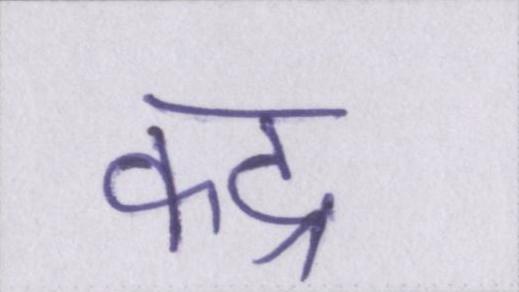 कद्र